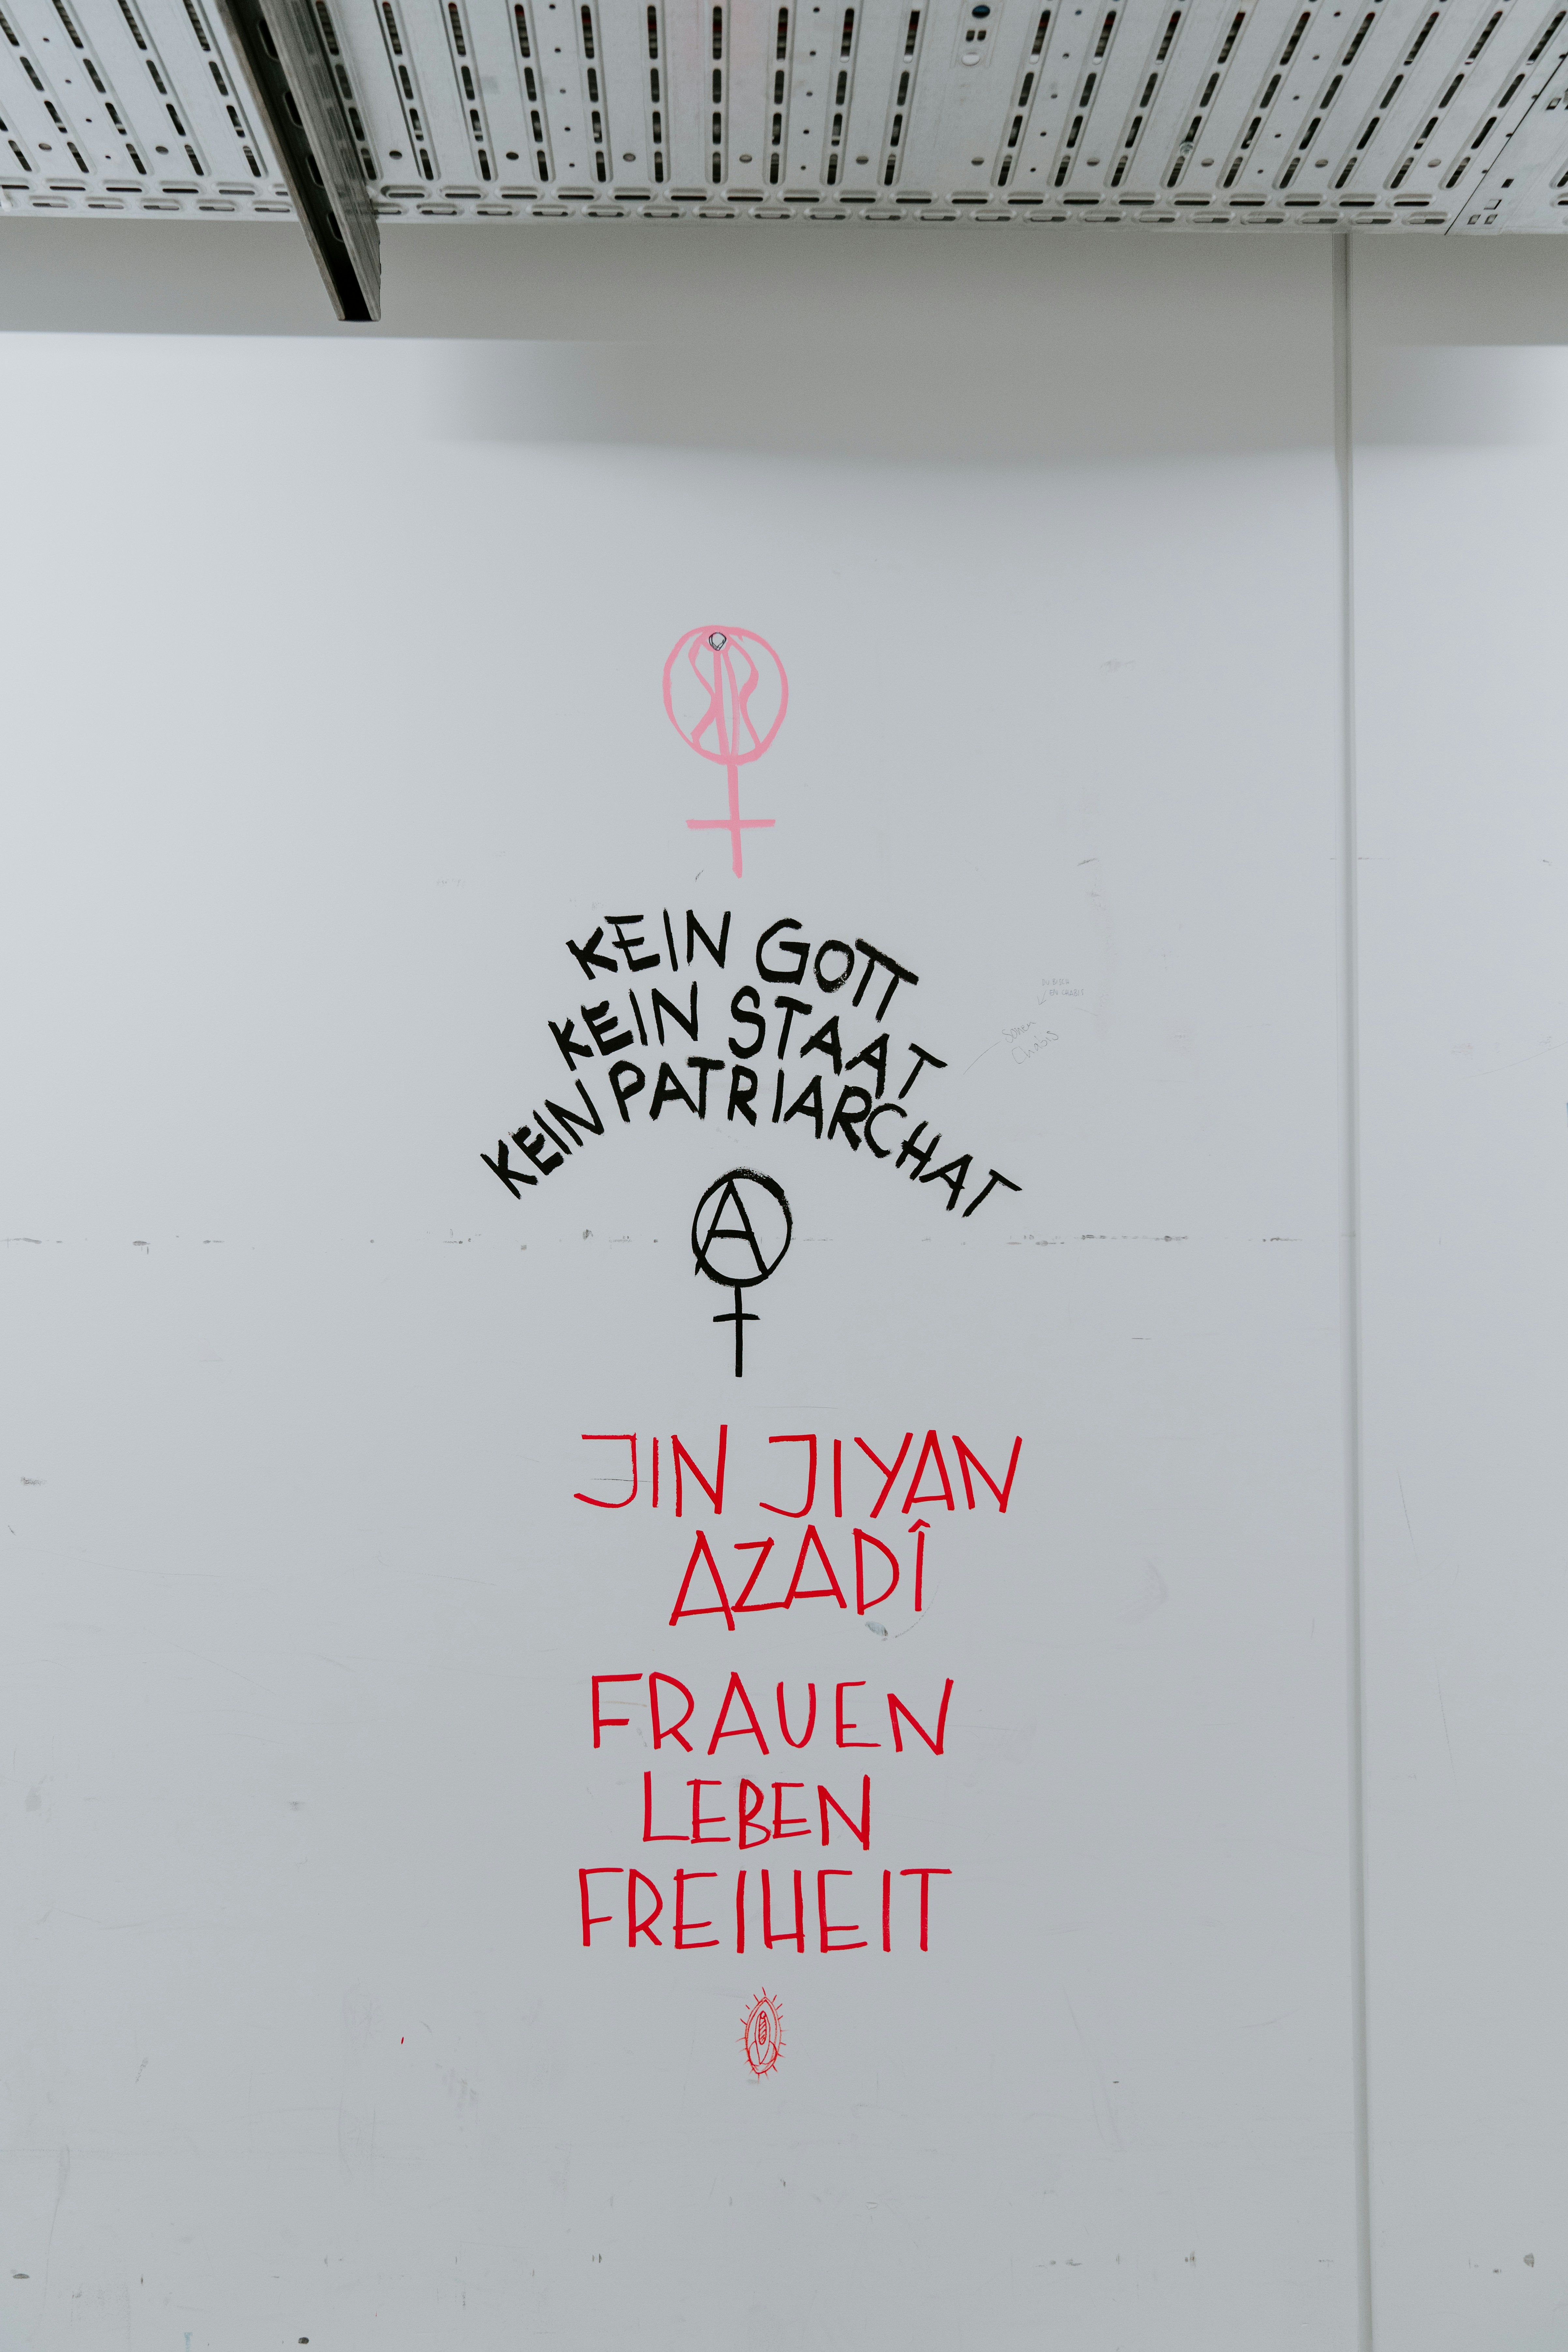 KEIN GOTT
KEIN STAAT
KEIN PATRIARCHAT
A
JIN JIYAN
AZADÎ
FRAUEN
LEBEN
FREIHEIT